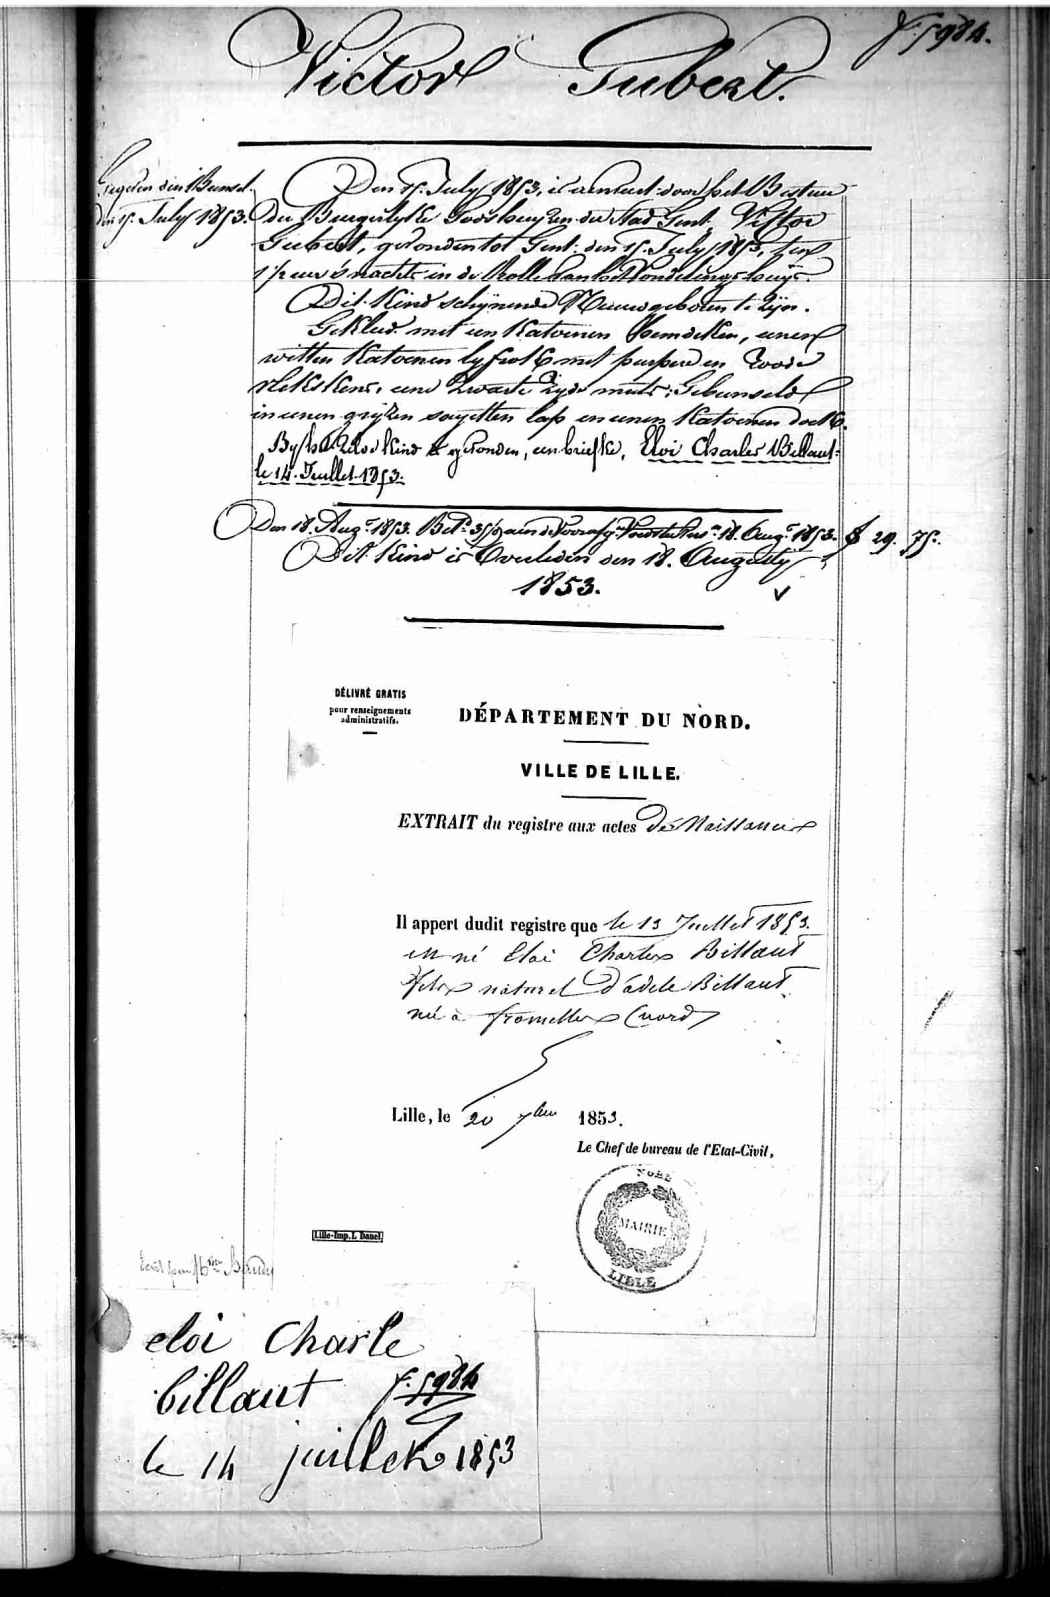 f. 5984.
Victor Gubert.
den 15. July 1853.
Den 15. July 1853, is door het Bestuur
der Burgerlyke Godshuyzen der Stad Gent. Victor
Gubert, gevonden tot Gent: den 15. July 1853, ten
1 1/2 uur 's nachts in de Rolle van het Vondelingshuys.
Dit Kind schynende Nieuwgeboren te Zyn.
Gekleed met een Katoenen hemdeken, eenen
witten Katoenen lyfrok met purpere en Roode
vlekskens, eene Zwarte Zyde muts; Gebunseld
in eenen gryzen sayetten lap en eenen Katoenen doek.
By het Zelve Kind is gevonden, een briefke, Eloi Charles Billaut
le 14. Juillet 1853.
Den 18. Augt 1853. 18. Augt 1853. f 29. 75.
Dit Kind is Overleden den 18. Augusty
1853.
DÉLIVRÉ GRATIS
pour renseignements
administratifs.
DÉPARTEMENT DU NORD.
VILLE DE LILLE.
EXTRAIT du registre aux actes de Naissances
Il appert dudit registre que le 13 Juillet 1853.
est né Eloi Charles Billaut
fils naturel d'adele Billaut
née à fromelles (nord)
Lille, le 20 7bre 1853.
Le Chef de bureau de l'Etat-Civil,
NORD
MAIRIE
LILLE
Lille-Imp. L Danel
eloi Charle
billaut f. 5984
le 14 juillet 1853